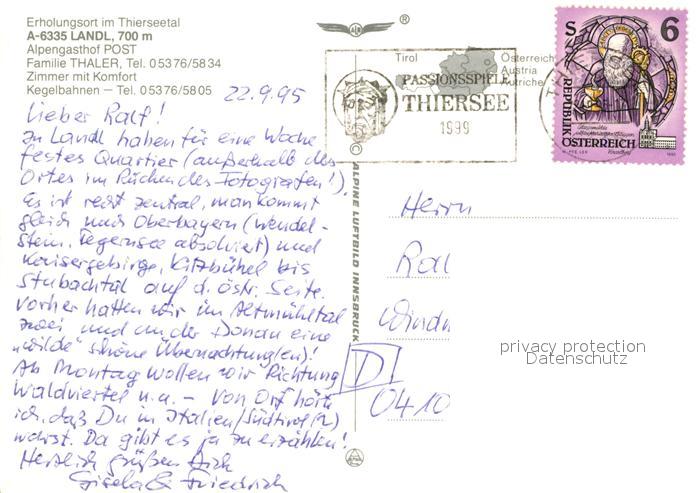 Erholungsort im Thierseetal
A-6335 LANDL, 700 m
Alpengasthof POST
Familie THALER, Tel. 05376/5834
Zimmer mit Komfort
Kegelbahnen – Tel. 05376/5805
22.9.95
Lieber Ralf!
In Landl haben für eine Woche
festes Quartier (außerhalb des
Ortes im Rücken des Fotografen!).
Es ist recht zentral, man kommt
gleich nach Oberbayern (Wendel-
stein, Tegernsee absolviert) und
Kaisergebirge, Kitzbühel bis
Stubachtal auf d. östr. Seite.
Vorher hatten wir im Altmühltal
zwei und an der Donau eine
"wilde" schöne Übernachtung(en)!
Ab Montag wollen wir Richtung
Waldviertel u.a. – Von Orf hörte
ich, daß Du in Italien/Südtirol(?)
warst. Da gibt es ja zu erzählen!
Herzlich grüßen Dich
Gisela & Friedrich
®
Tirol
Österreich
Austria
Autriche
PASSIONSSPIELE
THIERSEE
1999
S 6
REPUBLIK
ÖSTERREICH
ALPINE LUFTBILD INNSBRUCK
Herrn
Ral
Windm
D
0410
privacy protection
Datenschutz